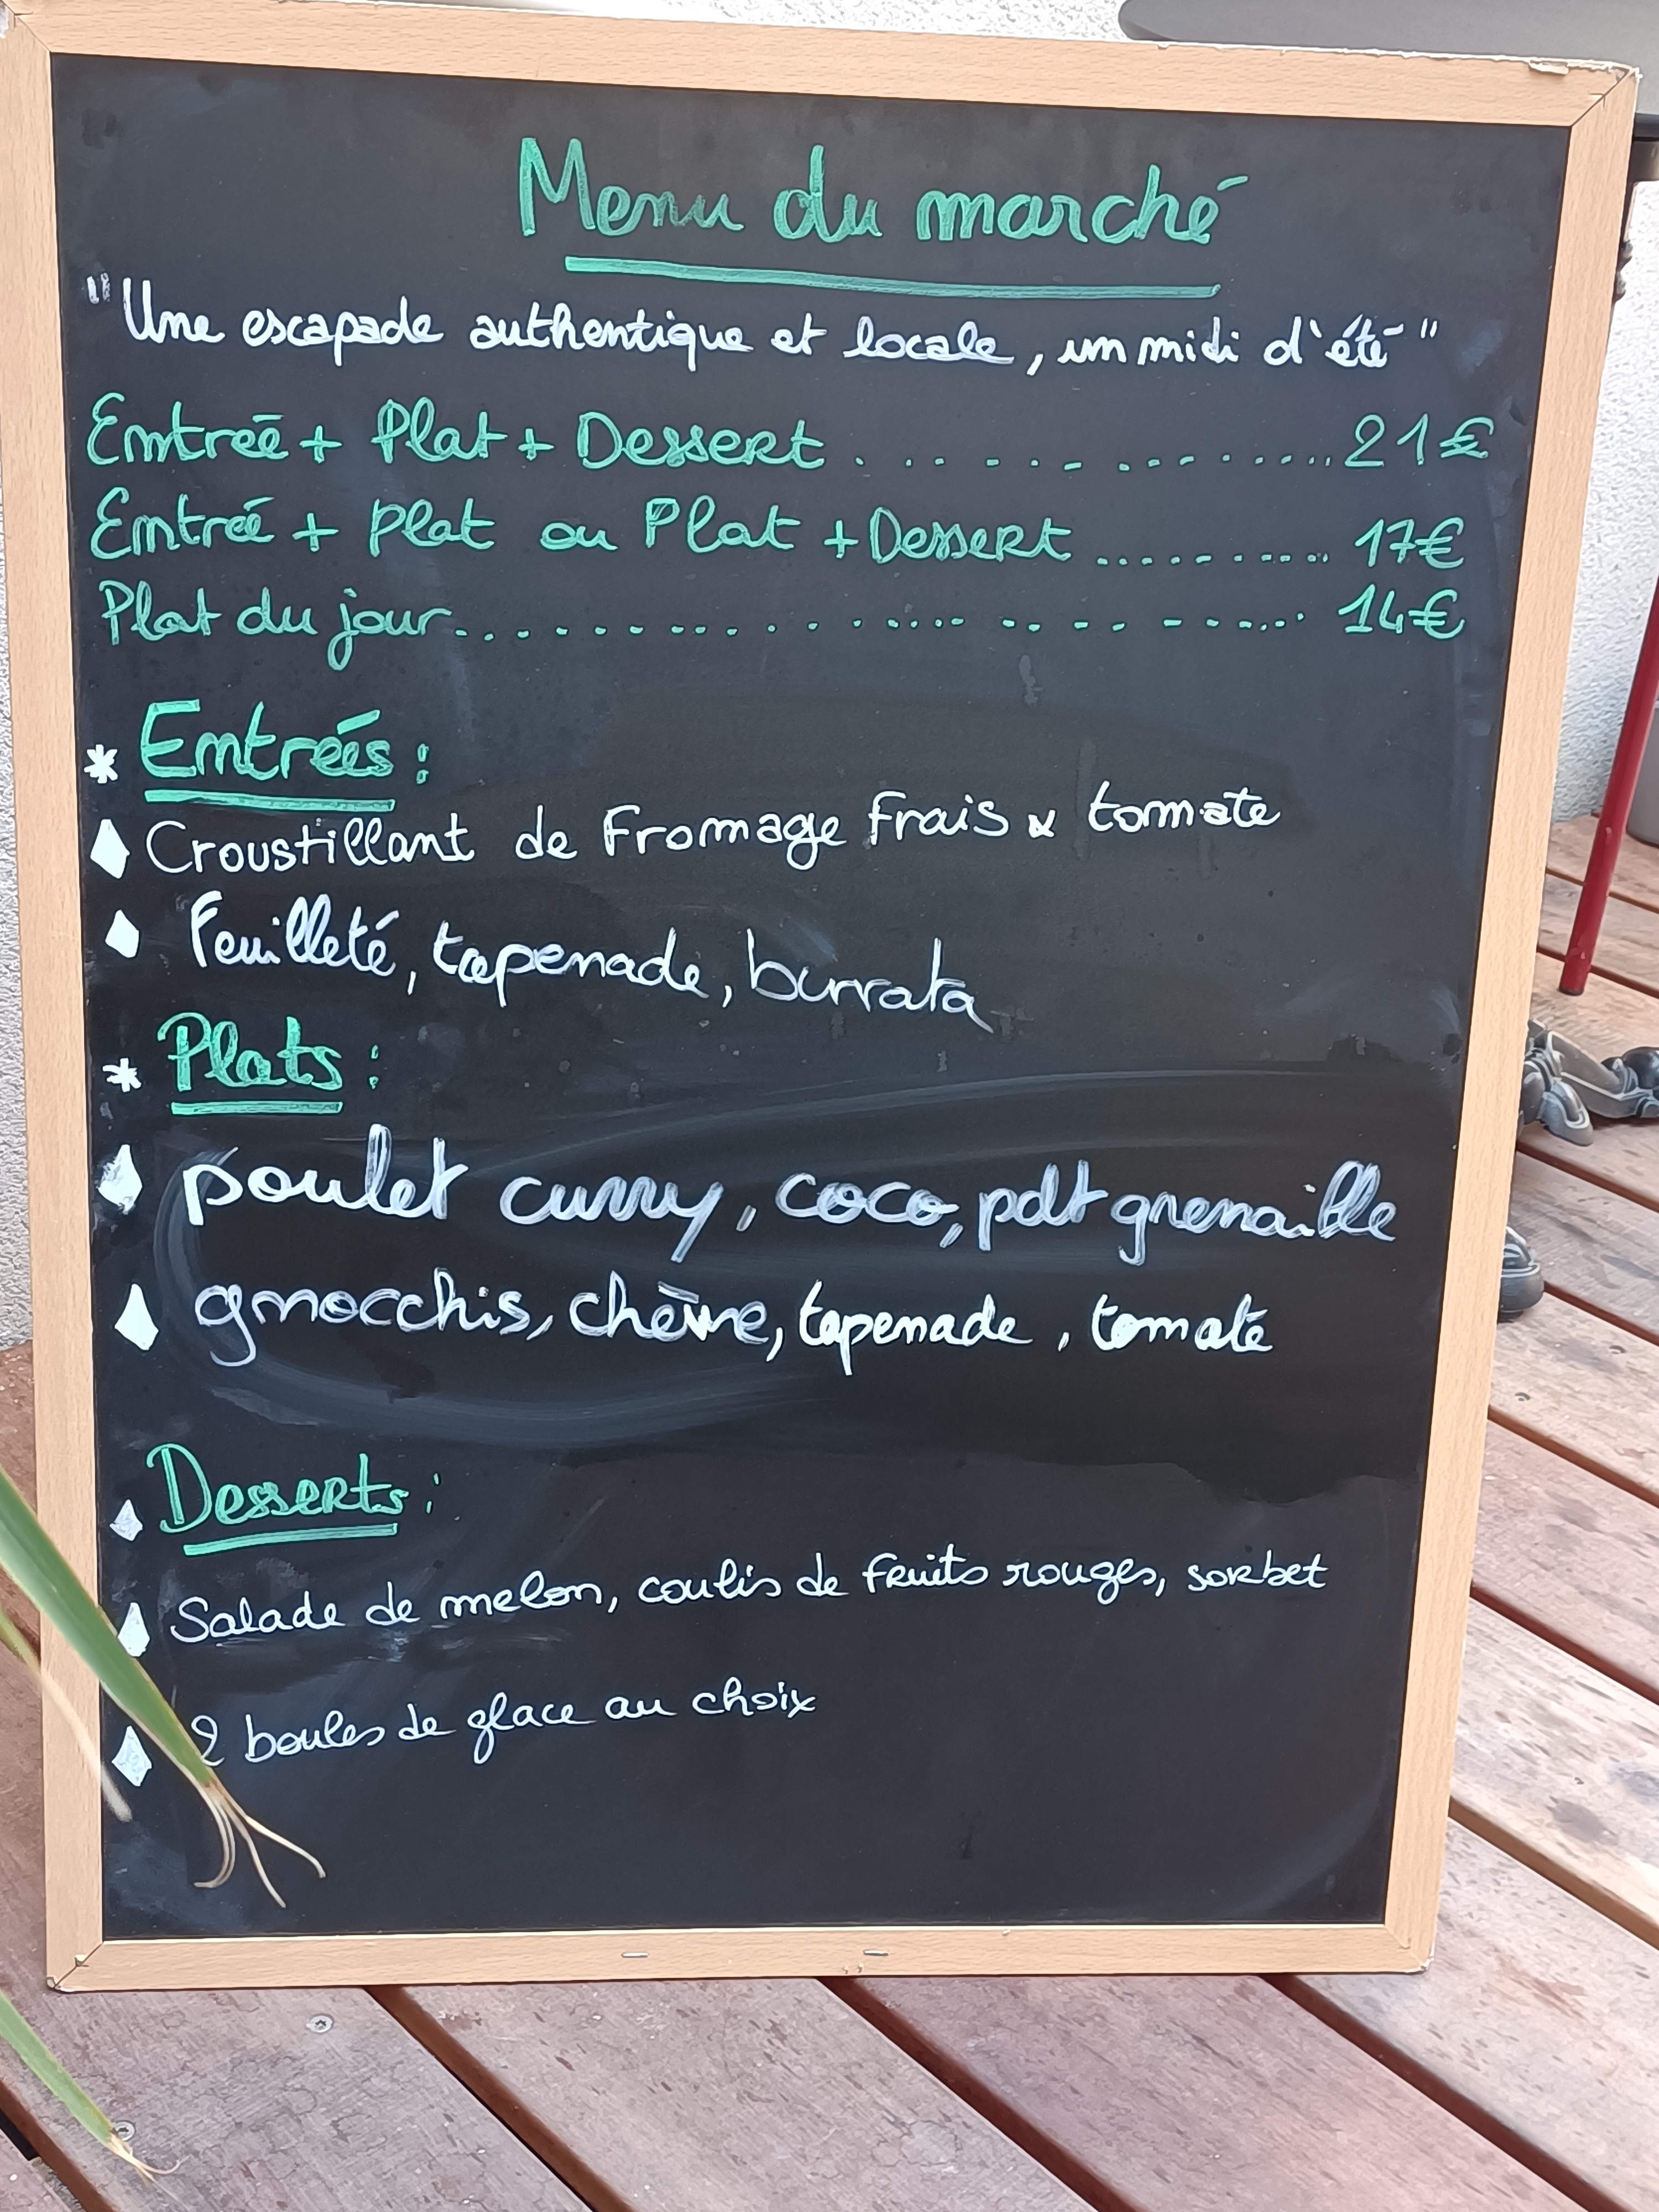 Menu du marché
"Une escapade authentique et locale, un midi d'été"
Entrée + Plat + Dessert . . . . . . . . . . . . . . . . 21€
Entrée + plat ou Plat + Dessert . . . . . . . . . . . 17€
Plat du jour. . . . . . . . . . . . . . . . . . . . . . . . . . . . 14€
* Entrées :
♦ Croustillant de Fromage Frais & tomate
♦ Feuilleté, tapenade, burrata
* Plats :
♦ poulet curry, coco, pdt grenaille
♦ gnocchis, chèvre, tapenade, tomate
♦ Desserts :
♦ Salade de melon, coulis de fruits rouges, sorbet
♦ 2 boules de glace au choix